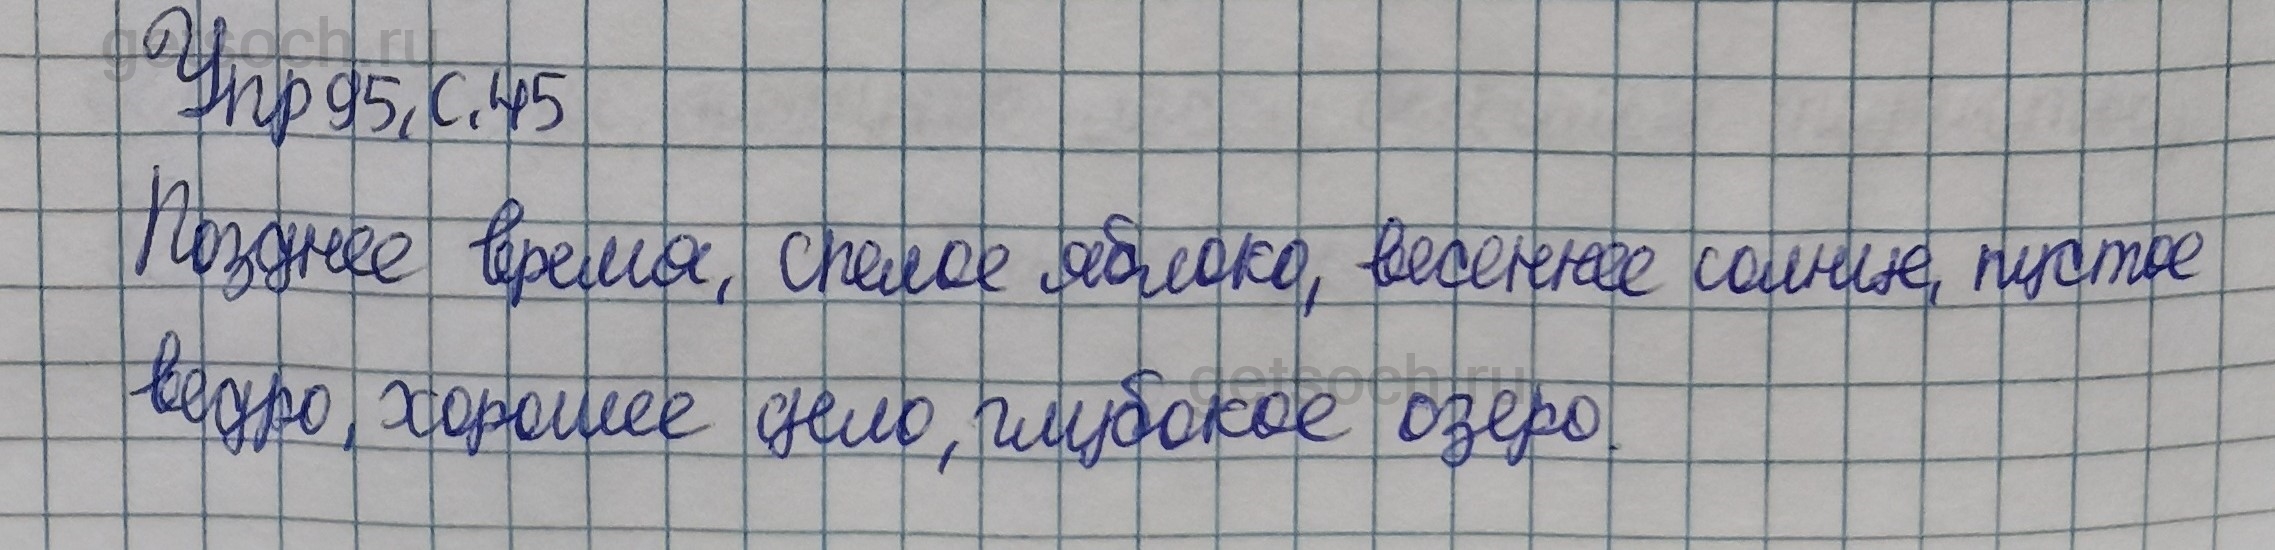 getsoch.ru
Упр 95, с. 45
Позднее время, спелое яблоко, весеннее солнце, пустое
getsoch.ru
ведро, хорошее дело, глубокое озеро.